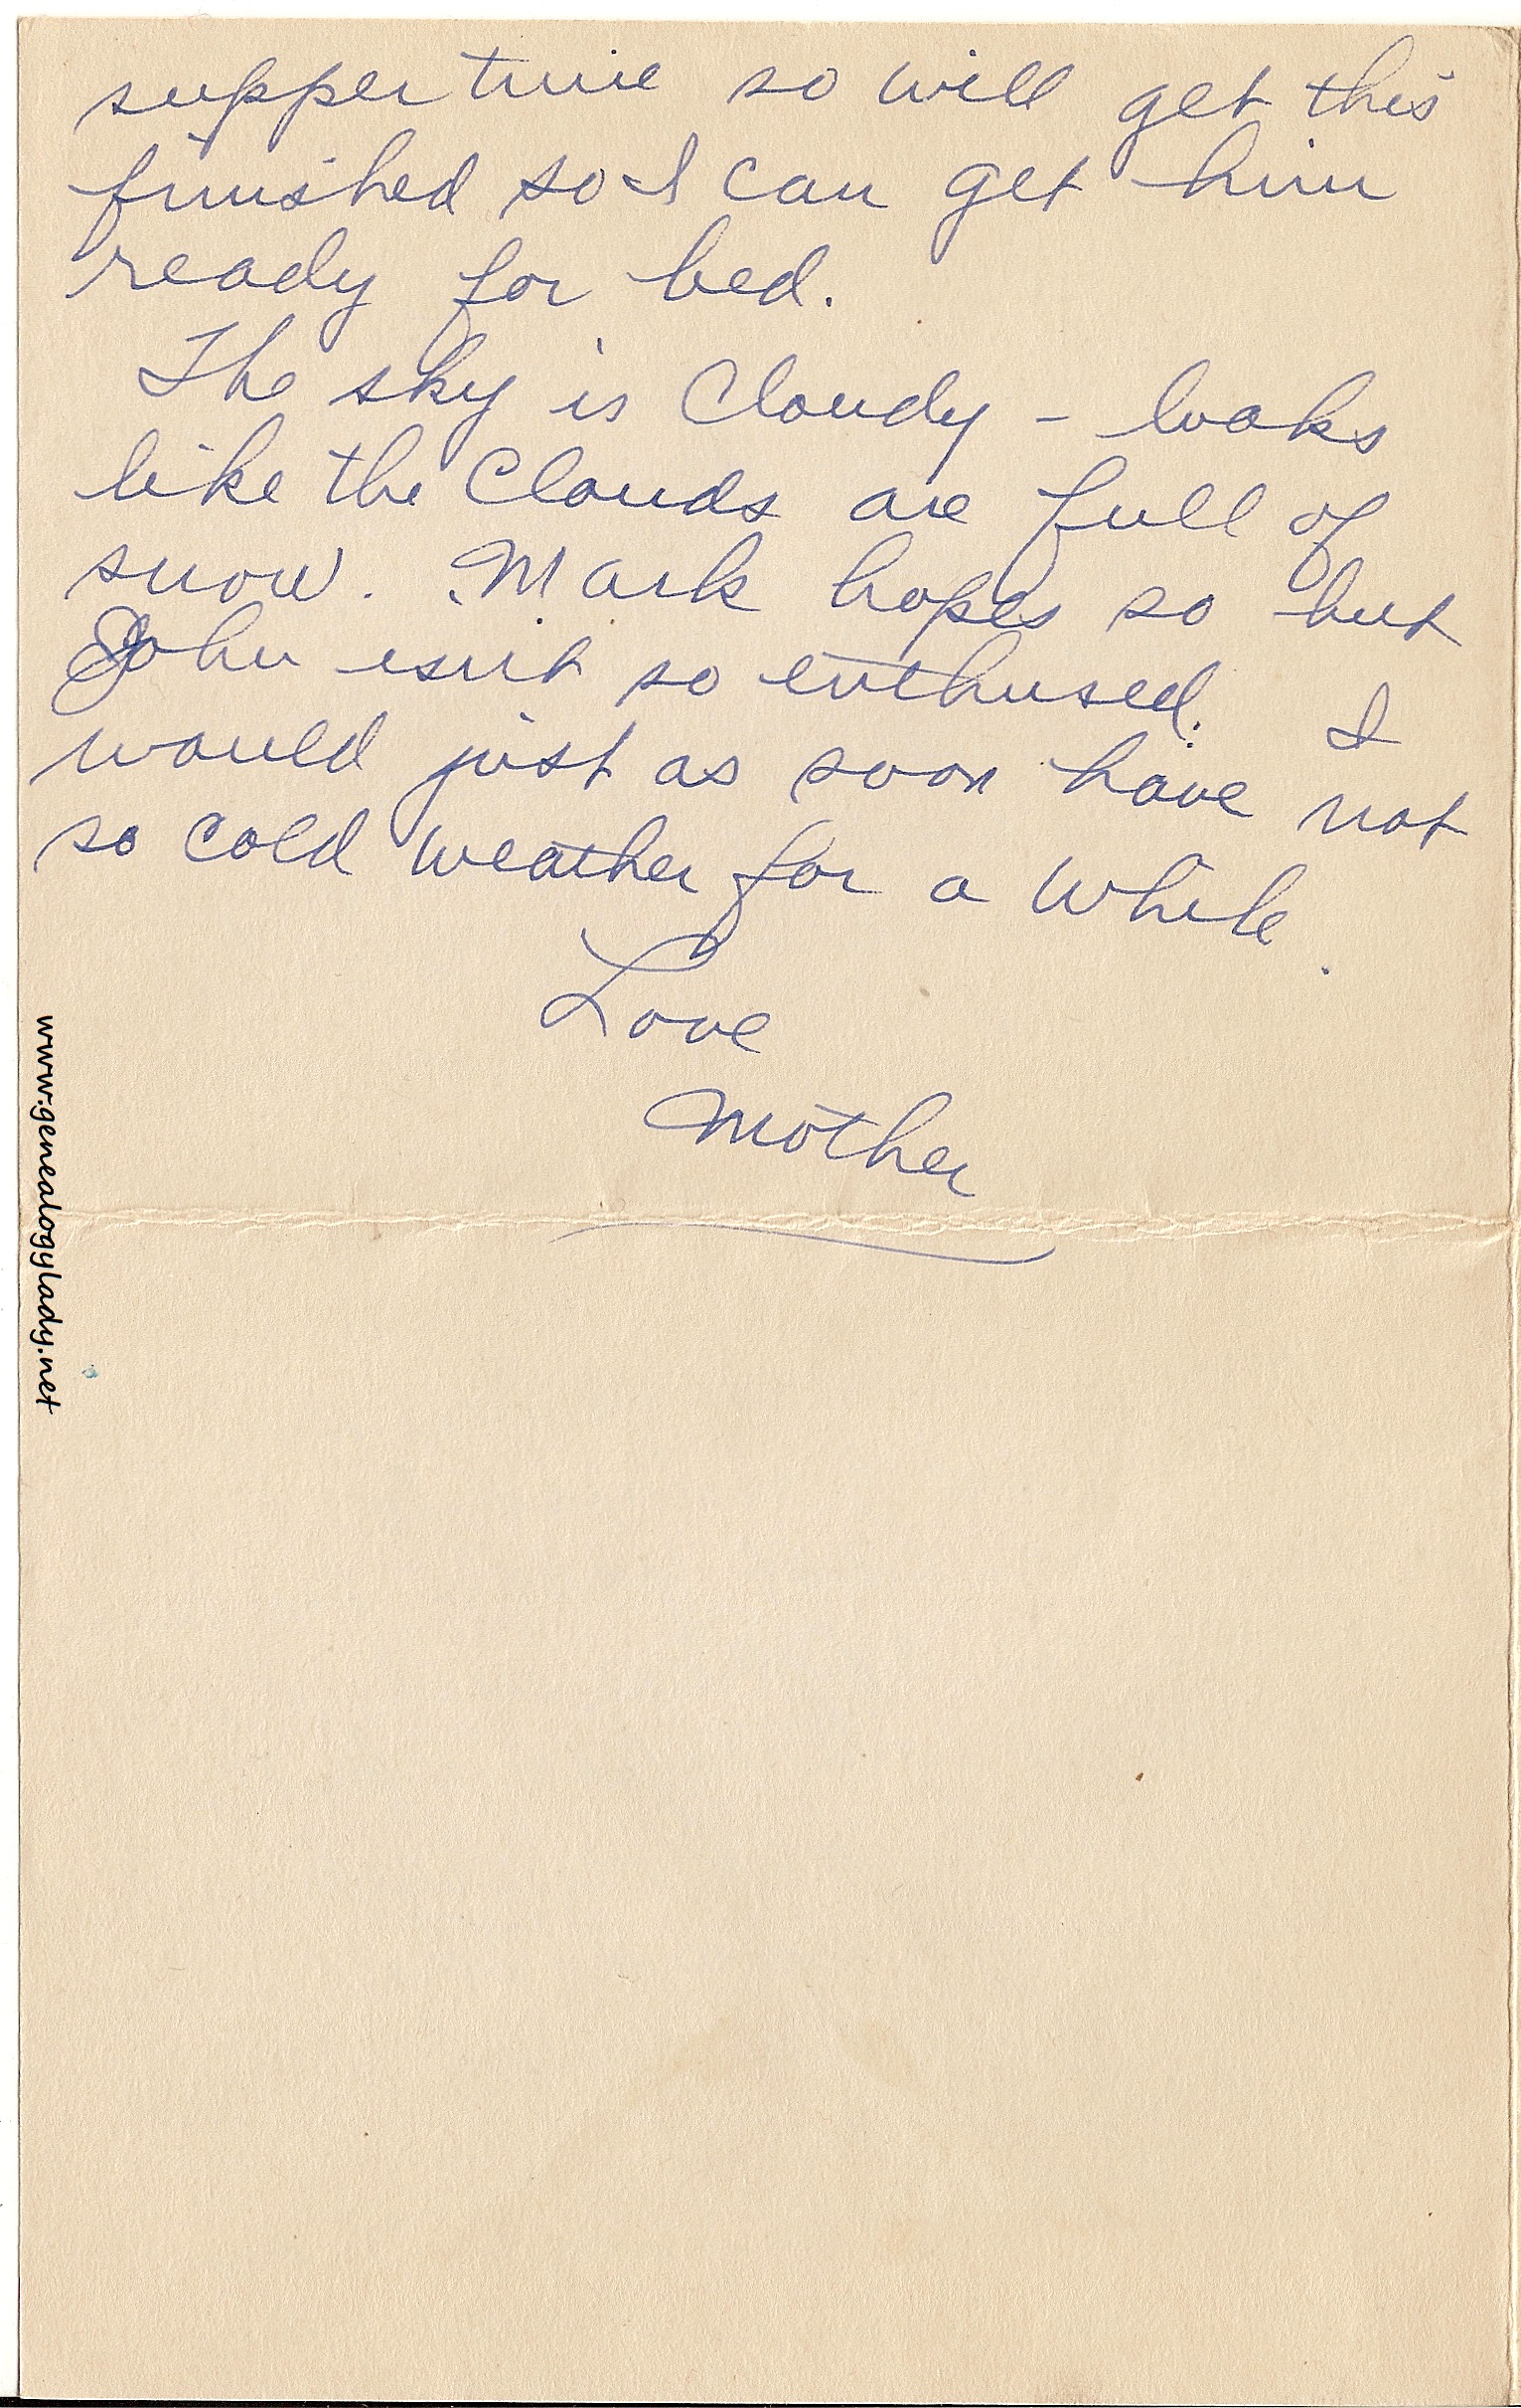 supper time so will get this
finished so I can get him
ready for bed.
The sky is Cloudy - looks
like the Clouds are full of
snow. Mark hopes so but
John isn't so enthused. I
would just as soon have not
so cold weather for a while.
Love
Mother
www.genealogylady.net